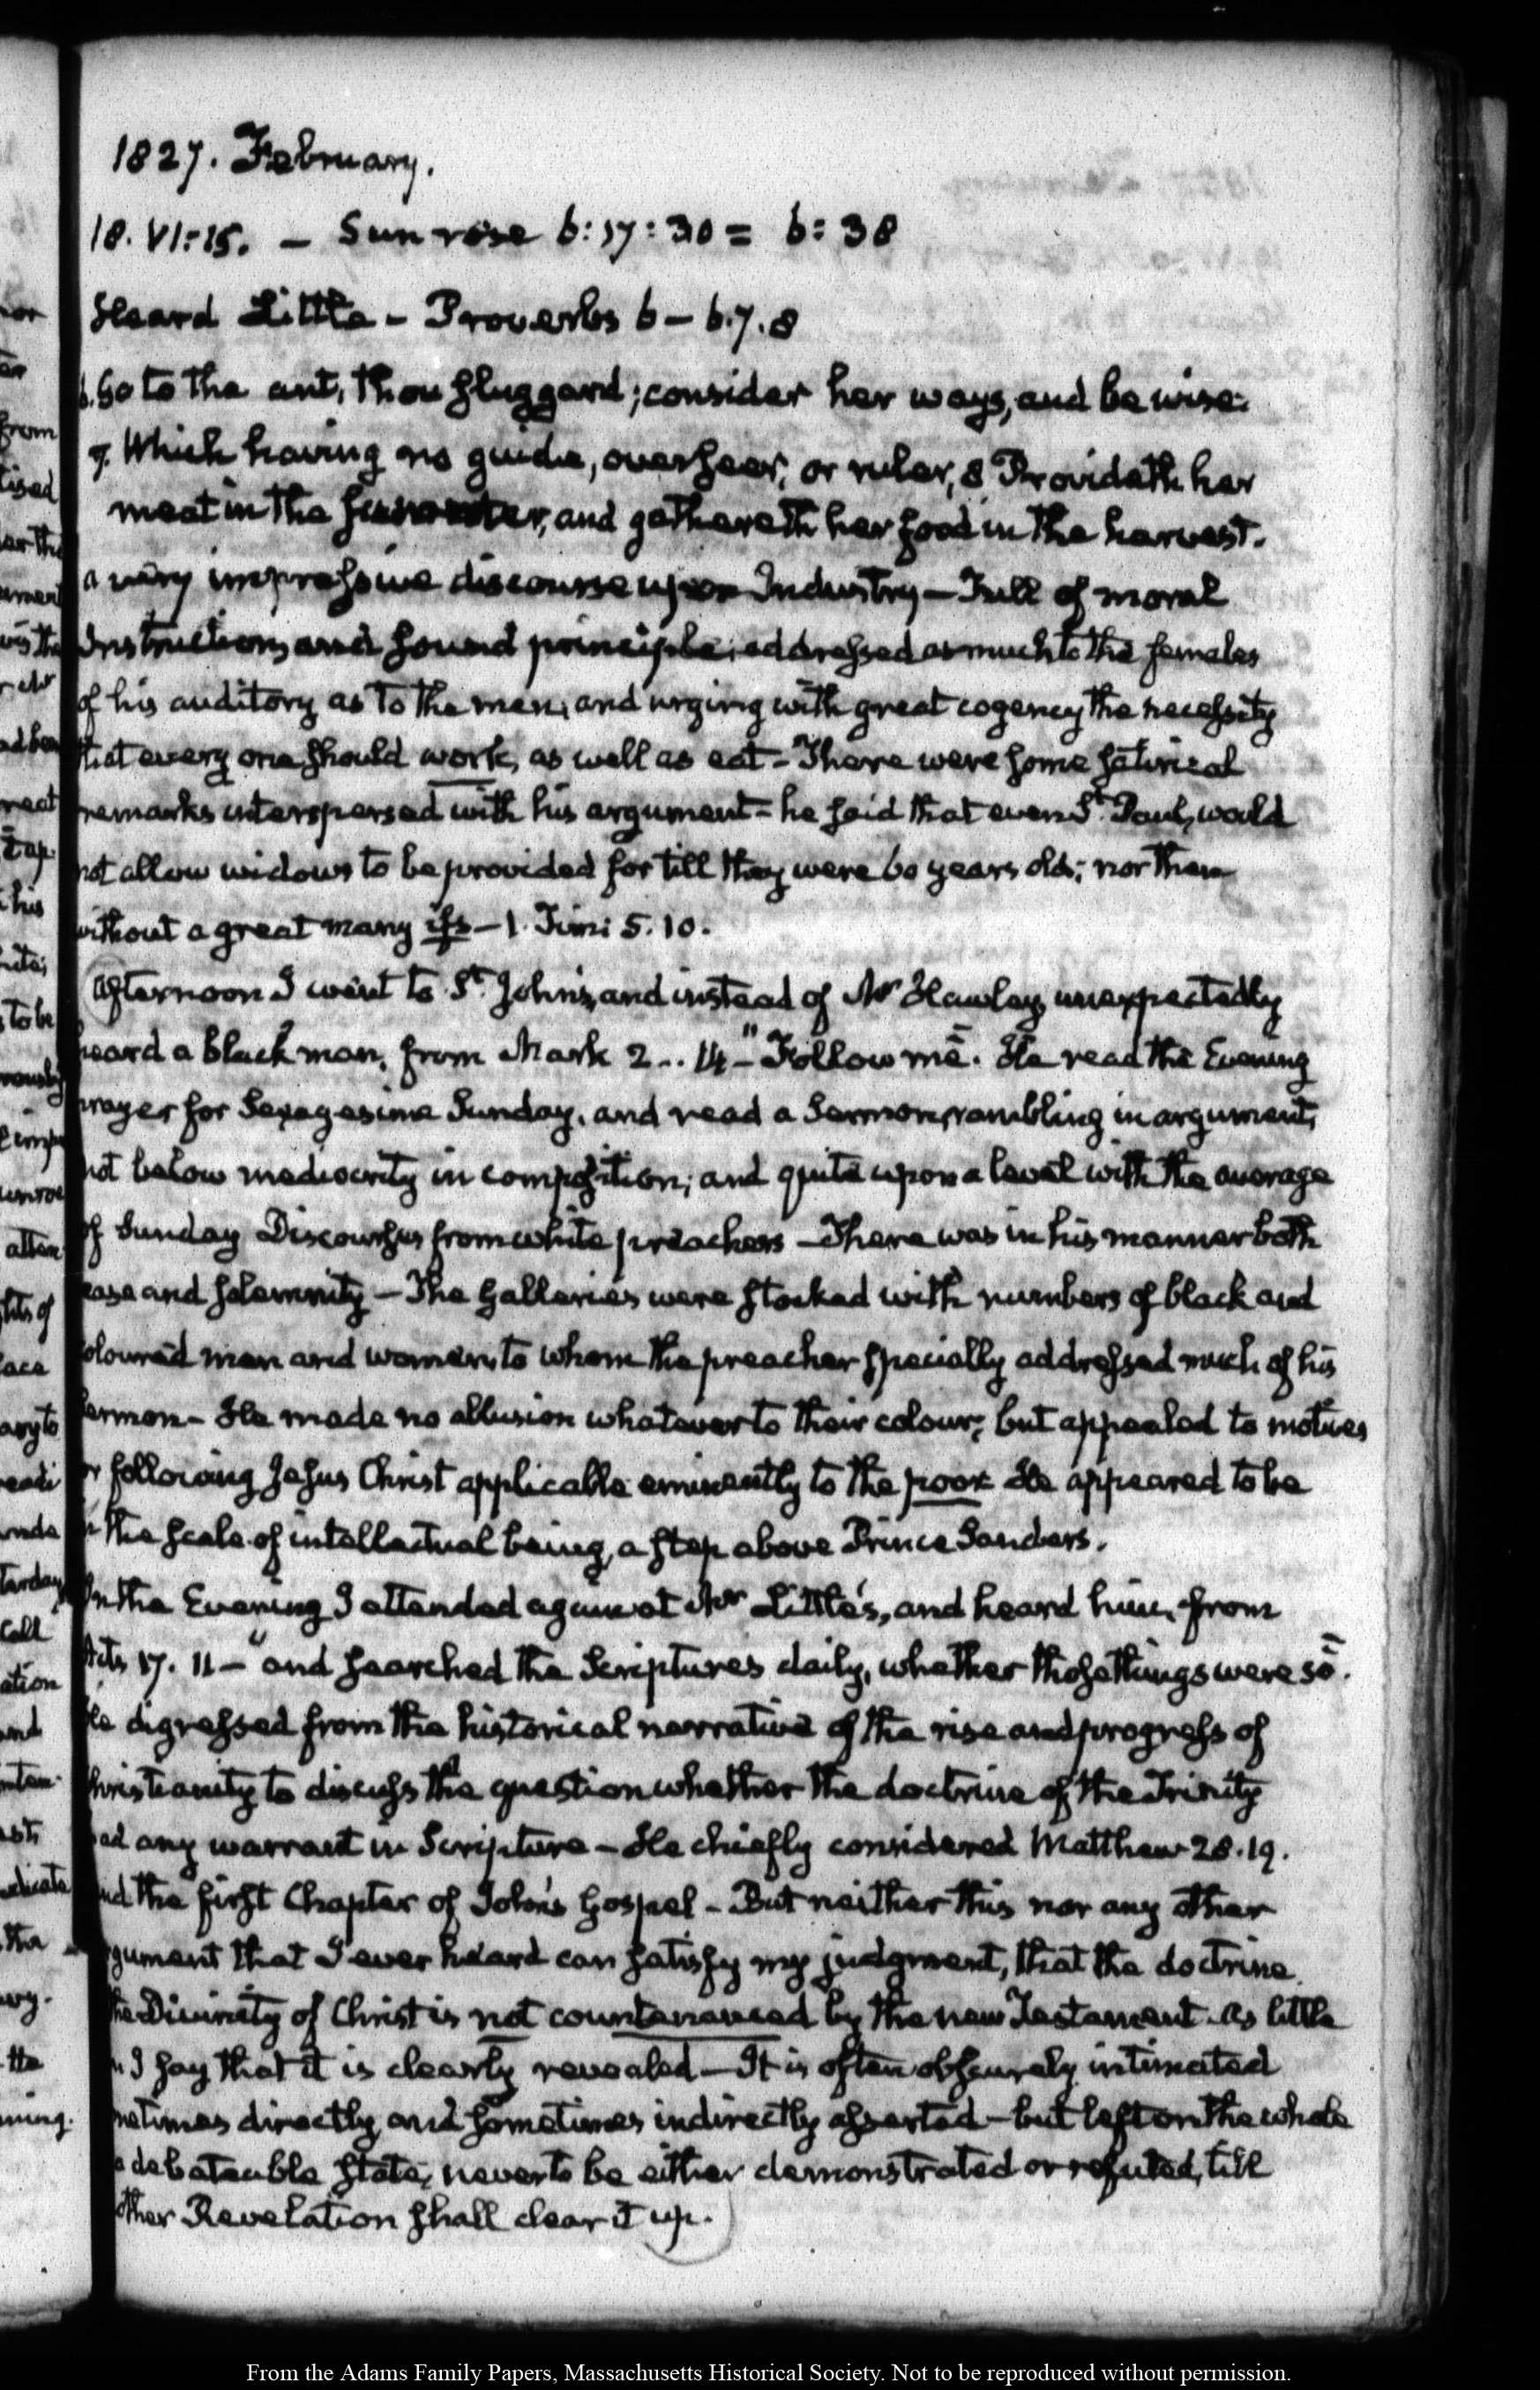 1827. February.
18. VI:15. — Sun rose 6:17:30 = 6:38
Heard Little - Proverbs 6 - 6.7.8
6. Go to the ant, thou sluggard; consider her ways, and be wise:
7. Which having no guide, overseer, or ruler, 8 Provideth her
meat in the summer, and gathereth her food in the harvest.
a very impressive discourse upon Industry — Full of moral
Instruction, and sound principle; addressed as much to the females
of his auditory as to the men, and urging with great cogency the necessity
that every one should work, as well as eat - There were some satirical
remarks interspersed with his argument - he said that even St. Paul, would
not allow widows to be provided for till they were 60 years old; nor then
without a great many ifs — 1. Tim: 5. 10.
Afternoon I went to St. John's, and instead of Mr Hawley, unexpectedly
heard a black man, from Mark 2.. 14 - "Follow me". He read the Evening
prayer for Sexagesima Sunday, and read a Sermon, rambling in argument,
not below mediocrity in composition; and quite upon a level with the average
of Sunday Discourses from white preachers - There was in his manner both
ease and solemnity — The Galleries were stocked with numbers of black and
coloured men and women, to whom the preacher specially addressed much of his
sermon - He made no allusion whatever to their colour; but appealed to motives
for following Jesus Christ applicable eminently to the poor He appeared to be
in the scale of intellectual being, a step above Prince Sanders.
In the Evening I attended again at Mr Little's, and heard him, from
Acts 17. 11 — "and searched the Scriptures daily, whether those things were so".
He digressed from the historical narrative of the rise and progress of
Christianity to discuss the question whether the doctrine of the Trinity
had any warrant in Scripture - He chiefly considered Matthew 28.19.
and the first Chapter of John's Gospel - But neither this nor any other
argument that I ever heard can satisfy my judgment, that the doctrine
the Divinity of Christ is not countenanced by the new Testament. As little
can I say that it is clearly revealed — It is often obscurely intimated
sometimes directly, and sometimes indirectly asserted - but left on the whole
a debateable state, never to be either demonstrated or refuted, till
other Revelation shall clear it up.
From the Adams Family Papers, Massachusetts Historical Society. Not to be reproduced without permission.